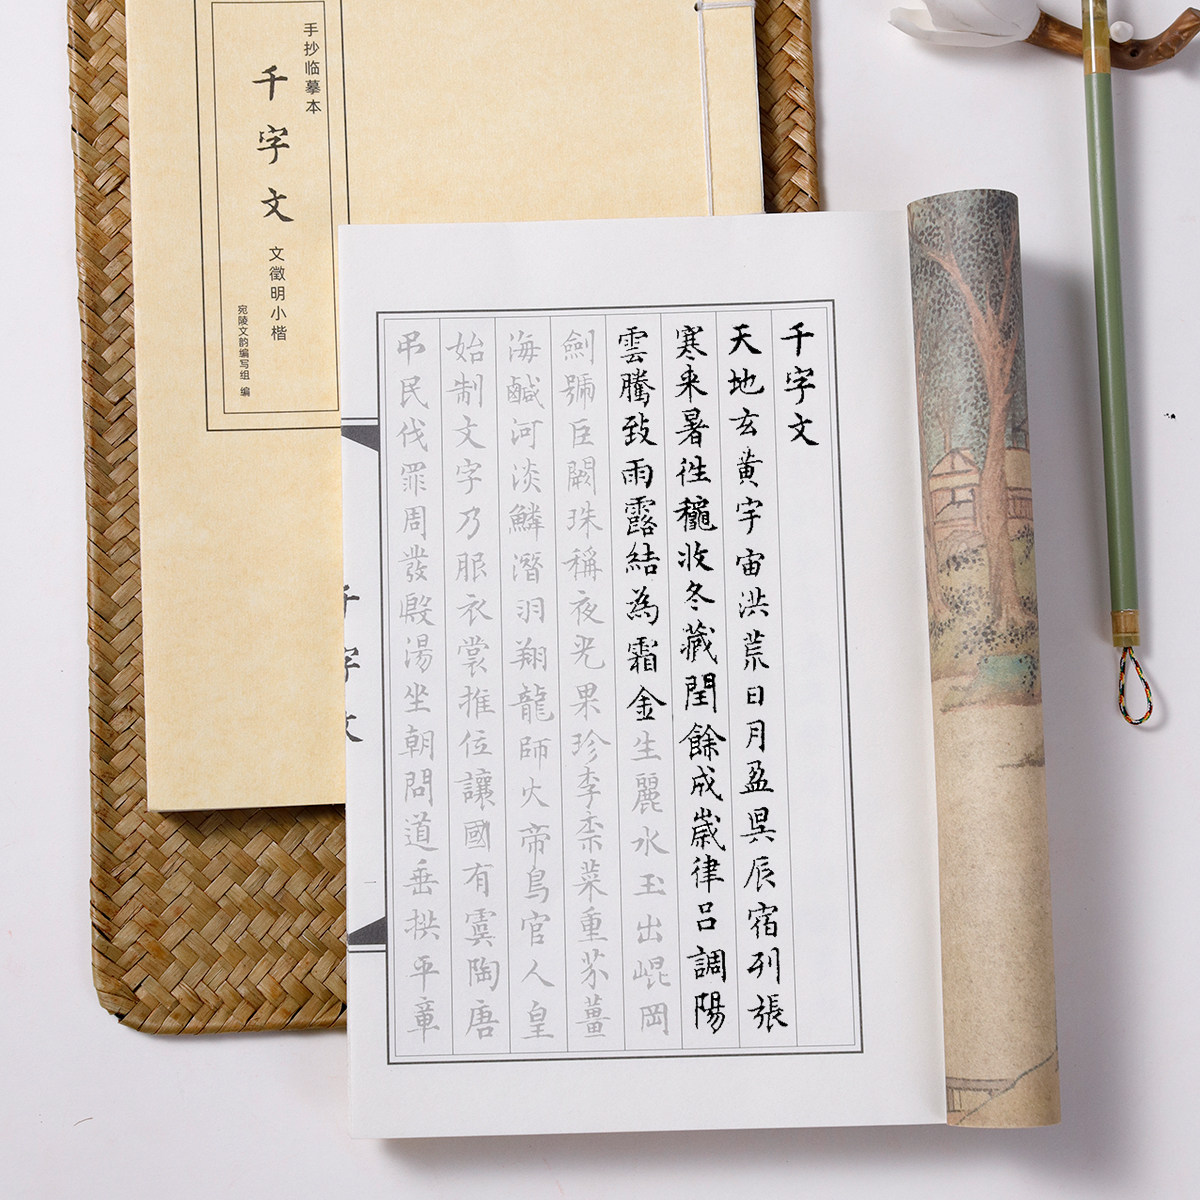 手抄临摹本
千字文
文徵明小楷
宛陵文韵编写组 编
千字文
天地玄黃宇宙洪荒日月盈昃辰宿列張
寒来暑往穐收冬藏閏餘成嵗律吕調陽
雲騰致雨露結為霜金生麗水玉出崐岡
劍號巨闕珠稱夜光果珍李柰菜重芥薑
海鹹河淡鱗潛羽翔龍師火帝鳥官人皇
始制文字乃服衣裳推位讓國有虞陶唐
弔民伐罪周發殷湯坐朝問道垂拱平章
千字文
一